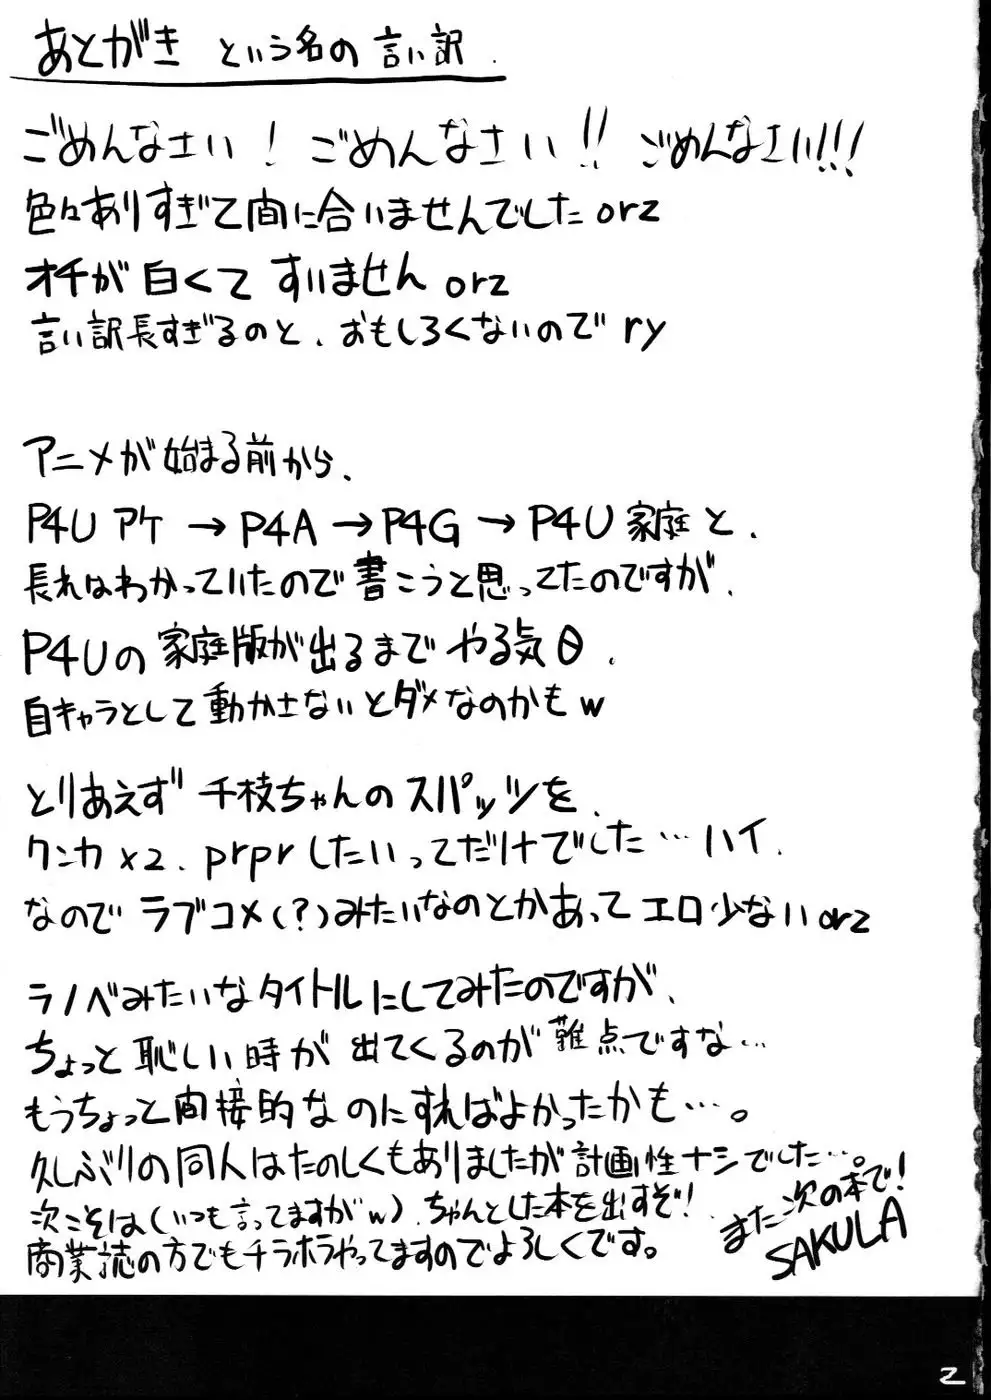 あとがき という名の言い訳.
ごめんなさい! ごめんなさい!! ごめんなさい!!!
色々ありすぎて間に合いませんでしたorz
オチが白くてすいませんorz
言い訳長すぎるのと、おもしろくないのでry
アニメが始まる前から、
P4Uアケ→P4A→P4G→P4U家庭と、
長れはわかっていたので書こうと思ってたのですが、
P4Uの家庭版が出るまでやる気0、
自キャラとして動かさないとダメなのかもw
とりあえず千枝ちゃんのスパッツを、
クンカ×2、prprしたいってだけでした…ハイ、
なのでラブコメ(?)みたいなのとかあってエロ少ないorz
ラノベみたいなタイトルにしてみたのですが、
ちょっと恥しい時が出てくるのが難点ですな…
もうちょっと間接的なのにすればよかったかも…。
久しぶりの同人はたのしくもありましたが計画性ナシでした…。
次こそは(いつも言ってますがw)、ちゃんとした本を出すぞ!
商業誌の方でもチラホラやってますのでよろしくです。
また次の本で!
SAKULA
2